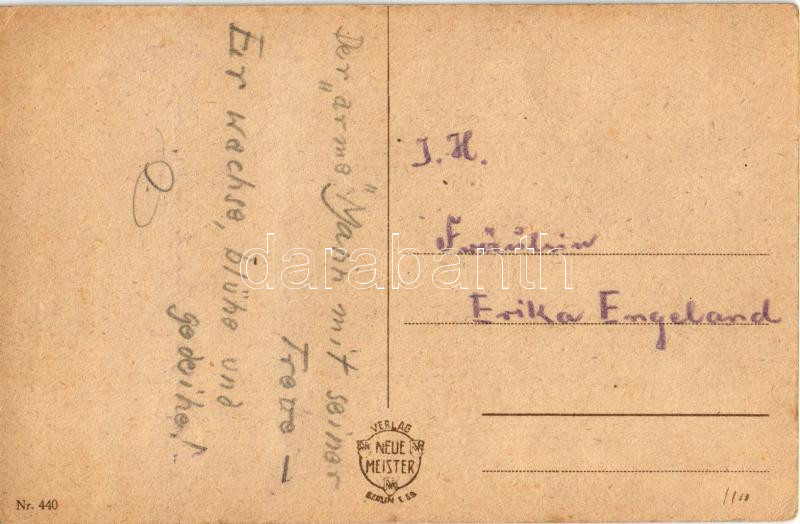 Der „arme" Mann mit seiner
Treue –
Er wachse, blühe und
gedeihe!
I. H.
Fräulein
Erika Engeland
VERLAG
NEUE
MEISTER
Nr. 440
darabanth